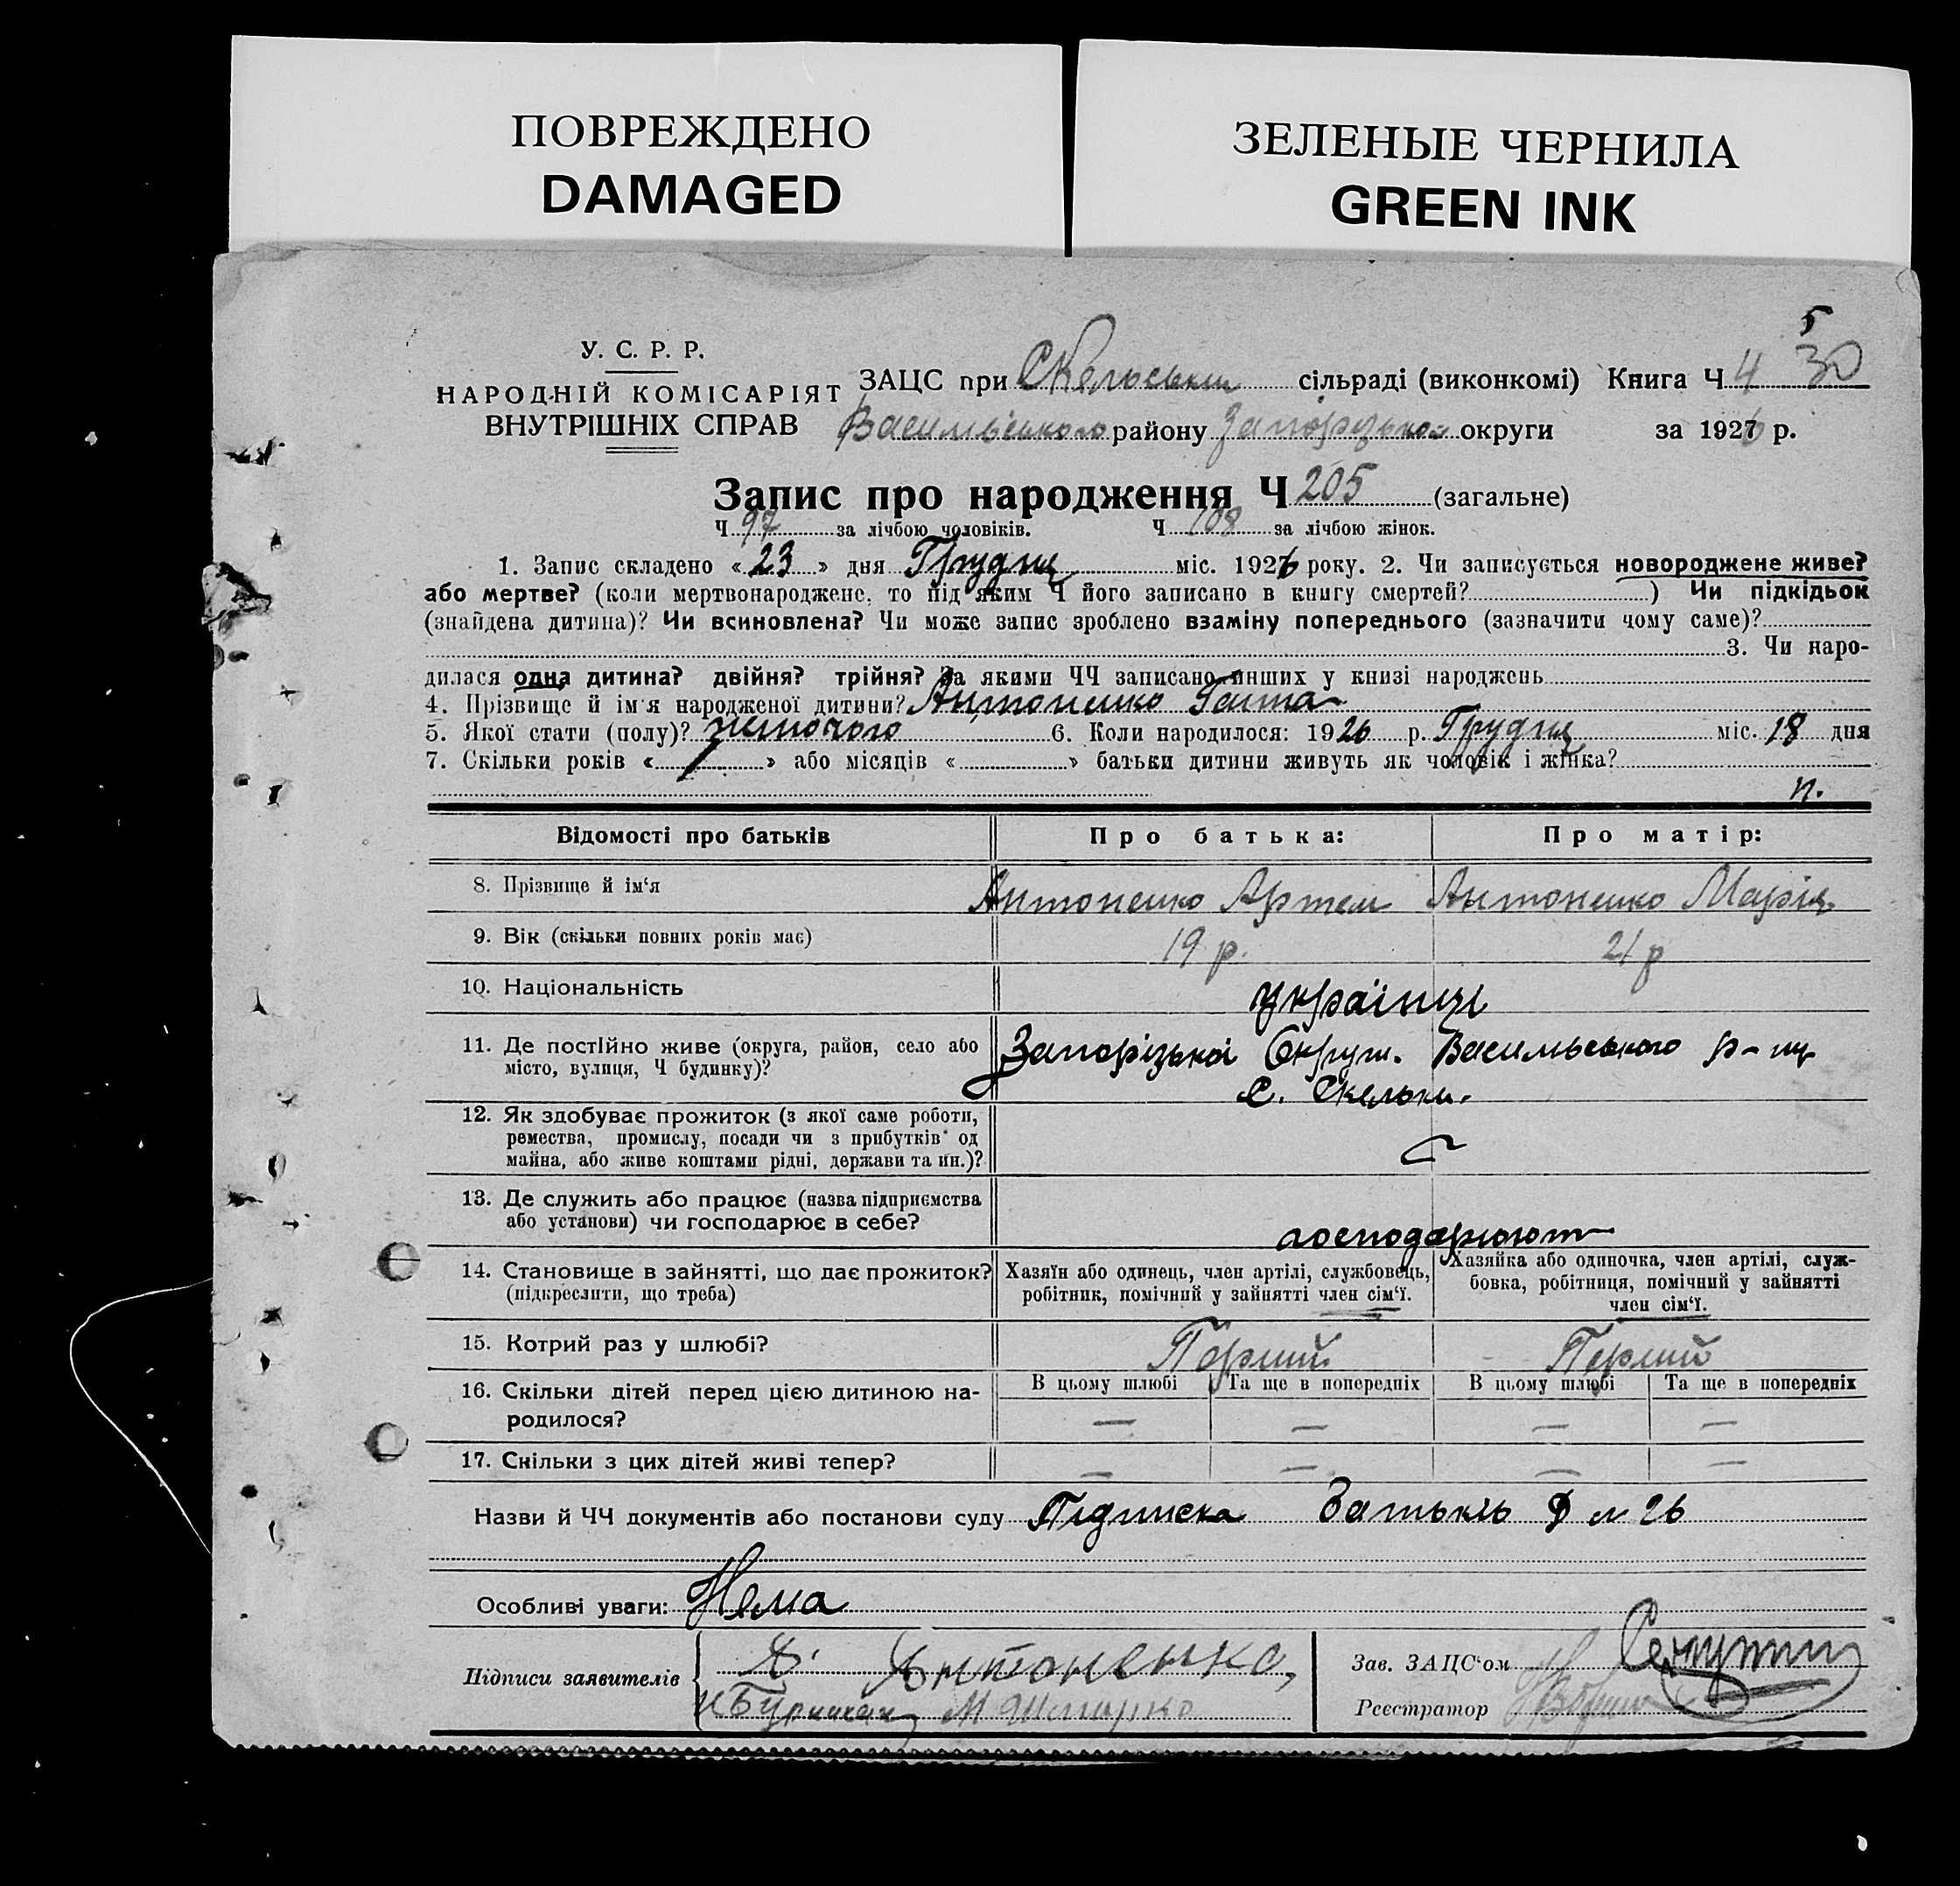 ПОВРЕЖДЕНО
DAMAGED
ЗЕЛЕНЫЕ ЧЕРНИЛА
GREEN INK
5
У. С. Р. Р.
НАРОДНІЙ КОМІСАРІЯТ
ВНУТРІШНІХ СПРАВ
ЗАЦС при Скельськім сільраді (виконкомі) Книга Ч 4 30
Василівського району Запорізької округи за 1926 р.
Запис про народження Ч 205 (загальне)
Ч 97 за лічбою чоловіків. Ч 108 за лічбою жінок.
1. Запис складено «23» дня Грудня міс. 1926 року. 2. Чи записується новороджене живе?
або мертве? (коли мертвонароджене, то під яким Ч його записано в книгу смертей? ) Чи підкідьок
(знайдена дитина)? Чи всиновлена? Чи може запис зроблено взаміну попереднього (зазначити чому саме)?
3. Чи наро-
дилася одна дитина? двійня? трійня? За якими ЧЧ записано инших у книзі народжень
4. Прізвище й ім'я народженої дитини? Антоненко
5. Якої стати (полу)? жіночого 6. Коли народилося: 1926 р. Грудня міс. 18 дня
7. Скільки років « 1 » або місяців « » батьки дитини живуть як чоловік і жінка?
п.
Відомості про батьків Про батька: Про матір:
8. Прізвище й ім'я Антоненко Артем Антоненко Марія
9. Вік (скільки повних років має) 19 р. 21 р
10. Національність українці
11. Де постІйно живе (округа, район, село або Запорізької Округи. Василівського р-ну
місто, вулиця, Ч будинку)? с. Скельки.
12. Як здобуває прожиток (з якої саме роботи,
ремества, промислу, посади чи з прибутків од
майна, або живе коштами рідні, держави та ин.)?
13. Де служить або працює (назва підприємства
або установи) чи господарює в себе? господарюют
14. Становище в зайнятті, що дає прожиток? Хазяїн або одинець, член артілі, службовець, Хазяйка або одиночка, член артілі, служ-
(підкреслити, що треба) робітник, помічний у зайнятті член сім'ї. бовка, робітниця, помічний у зайнятті
член сім'ї.
15. Котрий раз у шлюбі? Перший Перший
16. Скільки дітей перед цією дитиною на- В цьому шлюбі Та ще в попередніх В цьому шлюбі Та ще в попередніх
родилося? — — — —
17. Скільки з цих дітей живі тепер? — — — —
Назви й ЧЧ документів або постанови суду Підписка Батьків 26
Особливі уваги: Нема
Підписи заявителів А. Антоненко,
Зав. ЗАЦС'ом
Реєстратор